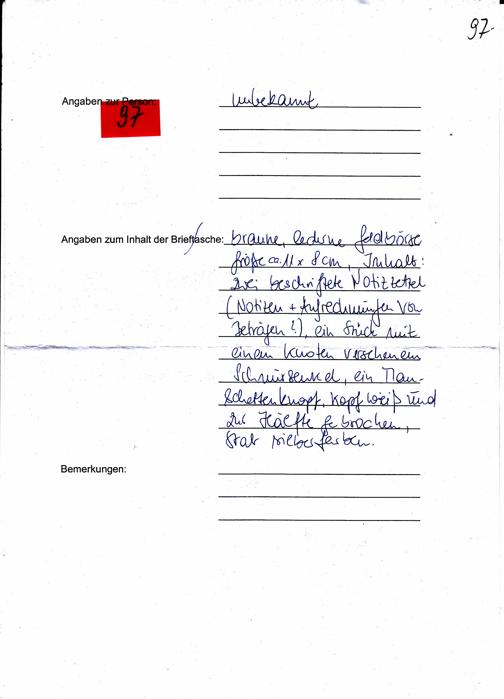 97.
Angaben zur Person: unbekannt
97
Angaben zum Inhalt der Brieftasche: braune, lederne Geldbörse
Größe ca. 11 x 8 cm, Inhalt:
zwei beschriftete Notizzettel
(Notizen + Aufrechnungen von
Beträgen?), ein Stück mit
einem Knoten versehenem
Schnürsenkel, ein Man-
schettenknopf, Kopf weiß und
zur Hälfte gebrochen,
Stab silberfarben.
Bemerkungen: